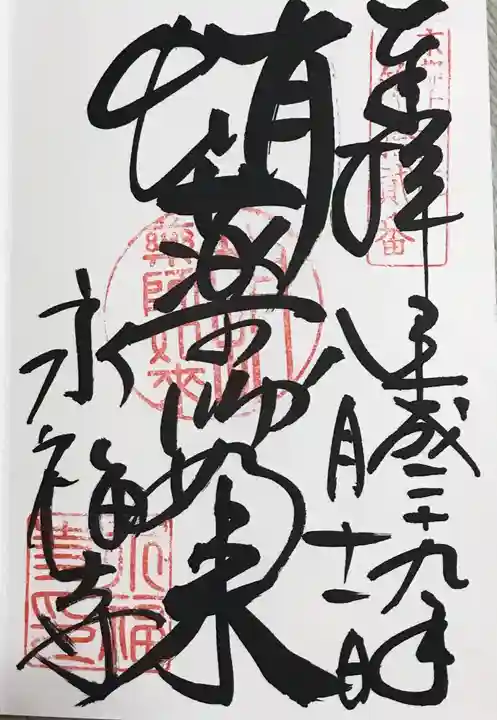 奉拝
平成二十九年
八月十一日
蛸薬師如来
永福寺
薬師如来